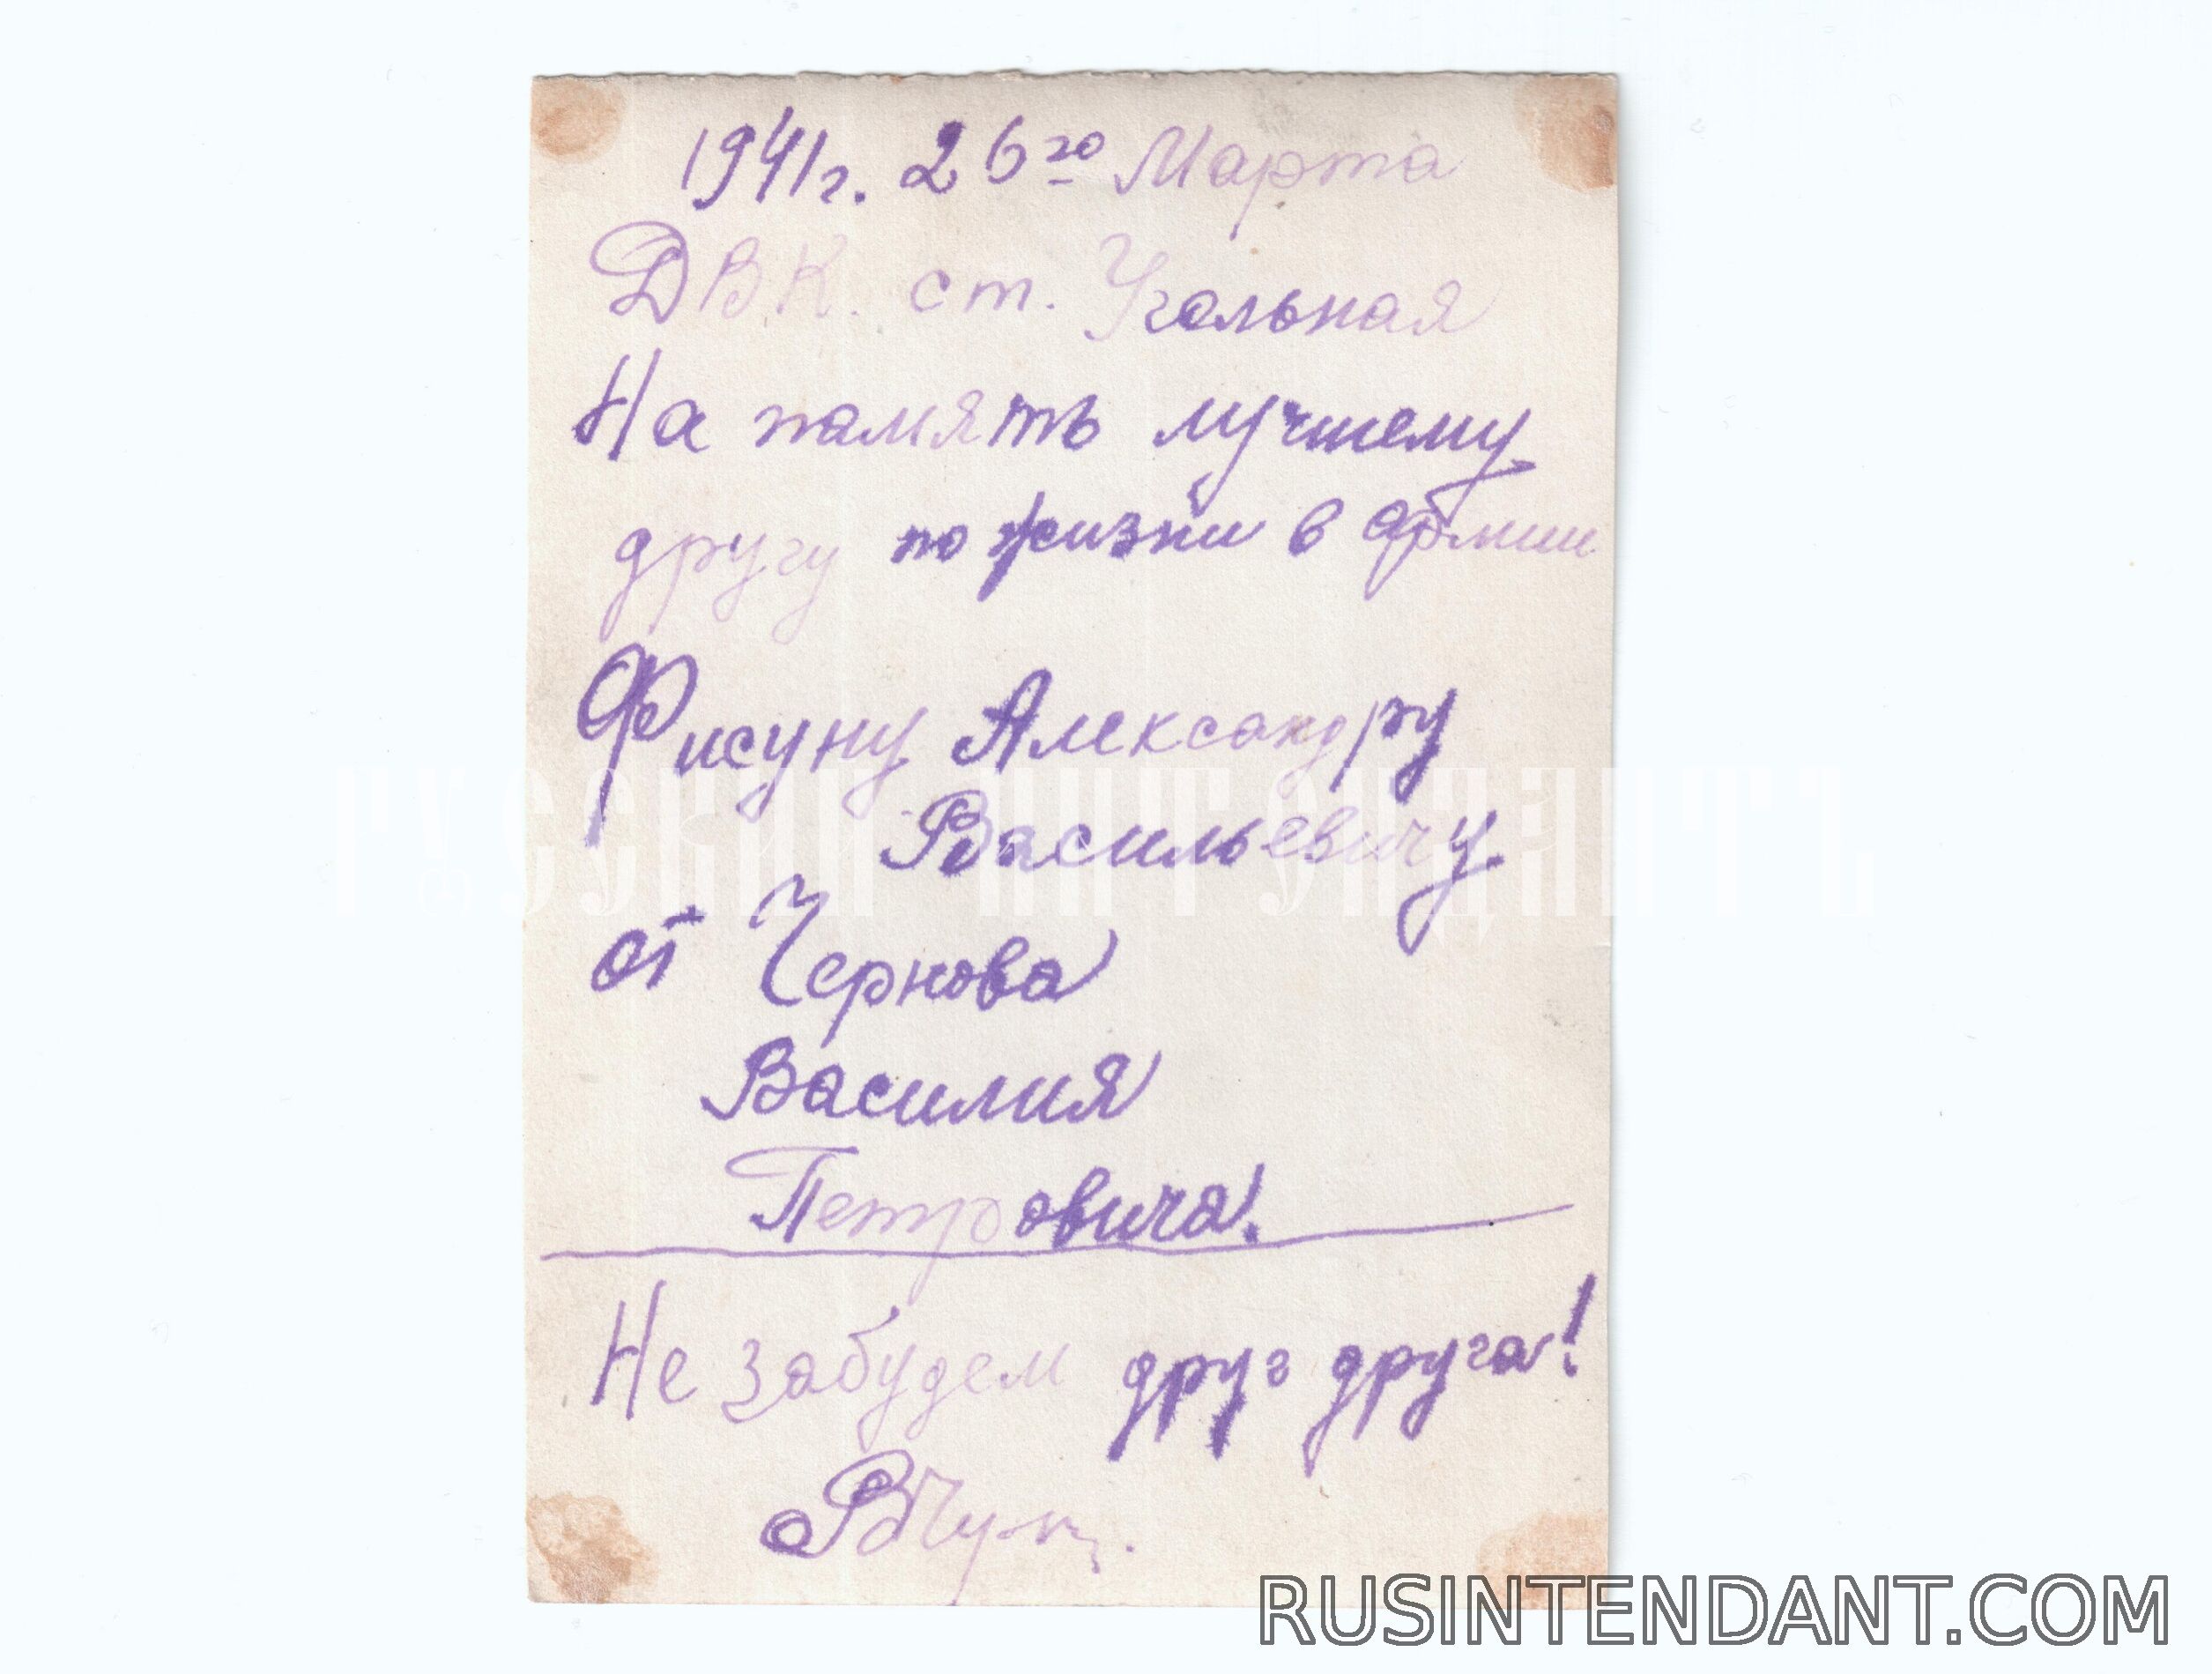 1941г. 26го Марта
ДВК. ст. Угольная
На память лучшему
другу по жизни в армии
Фисуну Александру
Васильевичу
от Чернова
Василия
Петровича.
Не забудем друг друга!
РУССКИЙ ИНТЕНДАНТЪ
RUSINTENDANT.COM